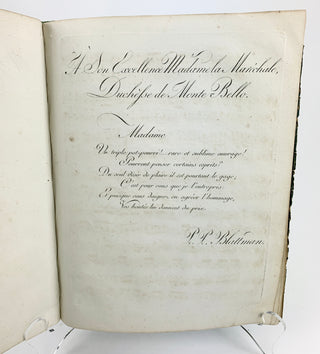 A Son Excellence Madame la Maréchale,
Duchesse de Monte Bello.
Madame
Un triple pot-pourri!... rare et sublime ouvrage!
Pourront penser certains esprits?
Du seul désir de plaire il est pourtant le gage;
C'est pour vous que je l'entrepris.
Et puisque vous daignez en agréer l'hommage,
Vos bontés lui donnent du prix.
P. P. Blattman.